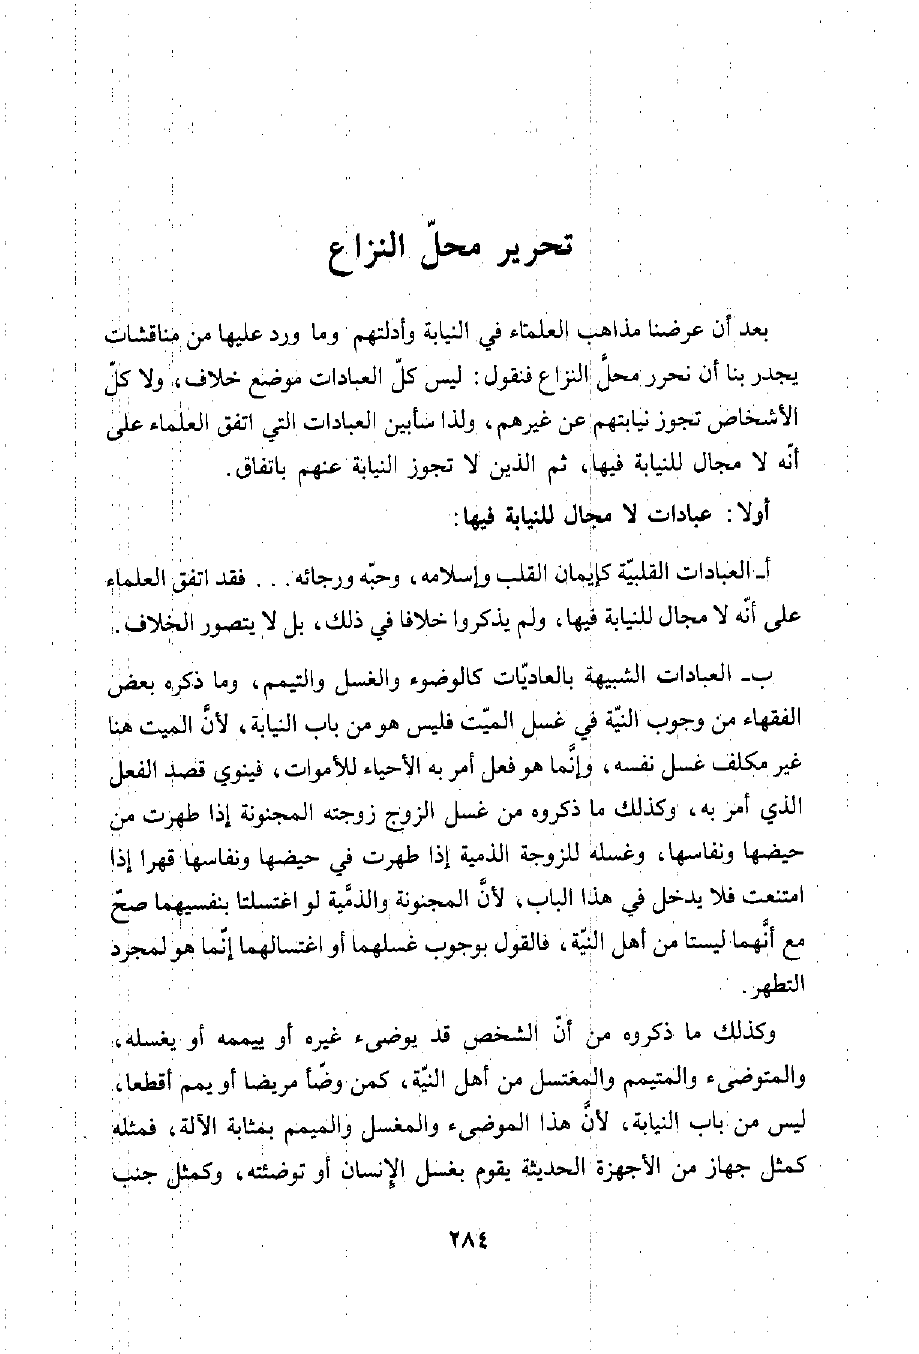 تحرير محلّ النزاع
بعد أن عرضنا مذاهب العلماء في النيابة وأدلتهم وما ورد عليها من مناقشات
يجدر بنا أن نحرر محلَّ النزاع فنقول: ليس كلّ العبادات موضع خلاف، ولا كلّ
الأشخاص تجوز نيابتهم عن غيرهم، ولذا سأبين العبادات التي اتفق العلماء على
أنّه لا مجال للنيابة فيها، ثم الذين لا تجوز النيابة عنهم باتفاق.
أولا: عبادات لا مجال للنيابة فيها:
أـ العبادات القلبيّة كإيمان القلب وإسلامه، وحبّه ورجائه... فقد اتفق العلماء
على أنّه لا مجال للنيابة فيها، ولم يذكروا خلافا في ذلك، بل لا يتصور الخلاف.
ب ـ العبادات الشبيهة بالعاديّات كالوضوء والغسل والتيمم، وما ذكره بعض
الفقهاء من وجوب النيّة في غسل الميّت فليس هو من باب النيابة، لأنَّ الميت هنا
غير مكلف غسل نفسه، وإنَّما هو فعل أمر به الأحياء للأموات، فينوي قصد الفعل
الذي أمر به، وكذلك ما ذكروه من غسل الزوج زوجته المجنونة إذا طهرت من
حيضها ونفاسها، وغسله للزوجة الذمية إذا طهرت في حيضها ونفاسها قهرا إذا
امتنعت فلا يدخل في هذا الباب، لأنَّ المجنونة والذمَّية لو اغتسلتا بنفسيهما صحّ
مع أنَّهما ليستا من أهل النيّة، فالقول بوجوب غسلهما أو اغتسالهما إنّما هو لمجرد
التطهر.
وكذلك ما ذكروه من أنّ الشخص قد يوضىء غيره أو ييممه أو يغسله،
والمتوضىء والمتيمم والمغتسل من أهل النيّة، كمن وضّأ مريضا أو يمم أقطعا،
ليس من باب النيابة، لأنَّ هذا الموضىء والمغسل والميمم بمثابة الآلة، فمثله
كمثل جهاز من الأجهزة الحديثة يقوم بغسل الإنسان أو توضئته، وكمثل جنب
٢٨٤